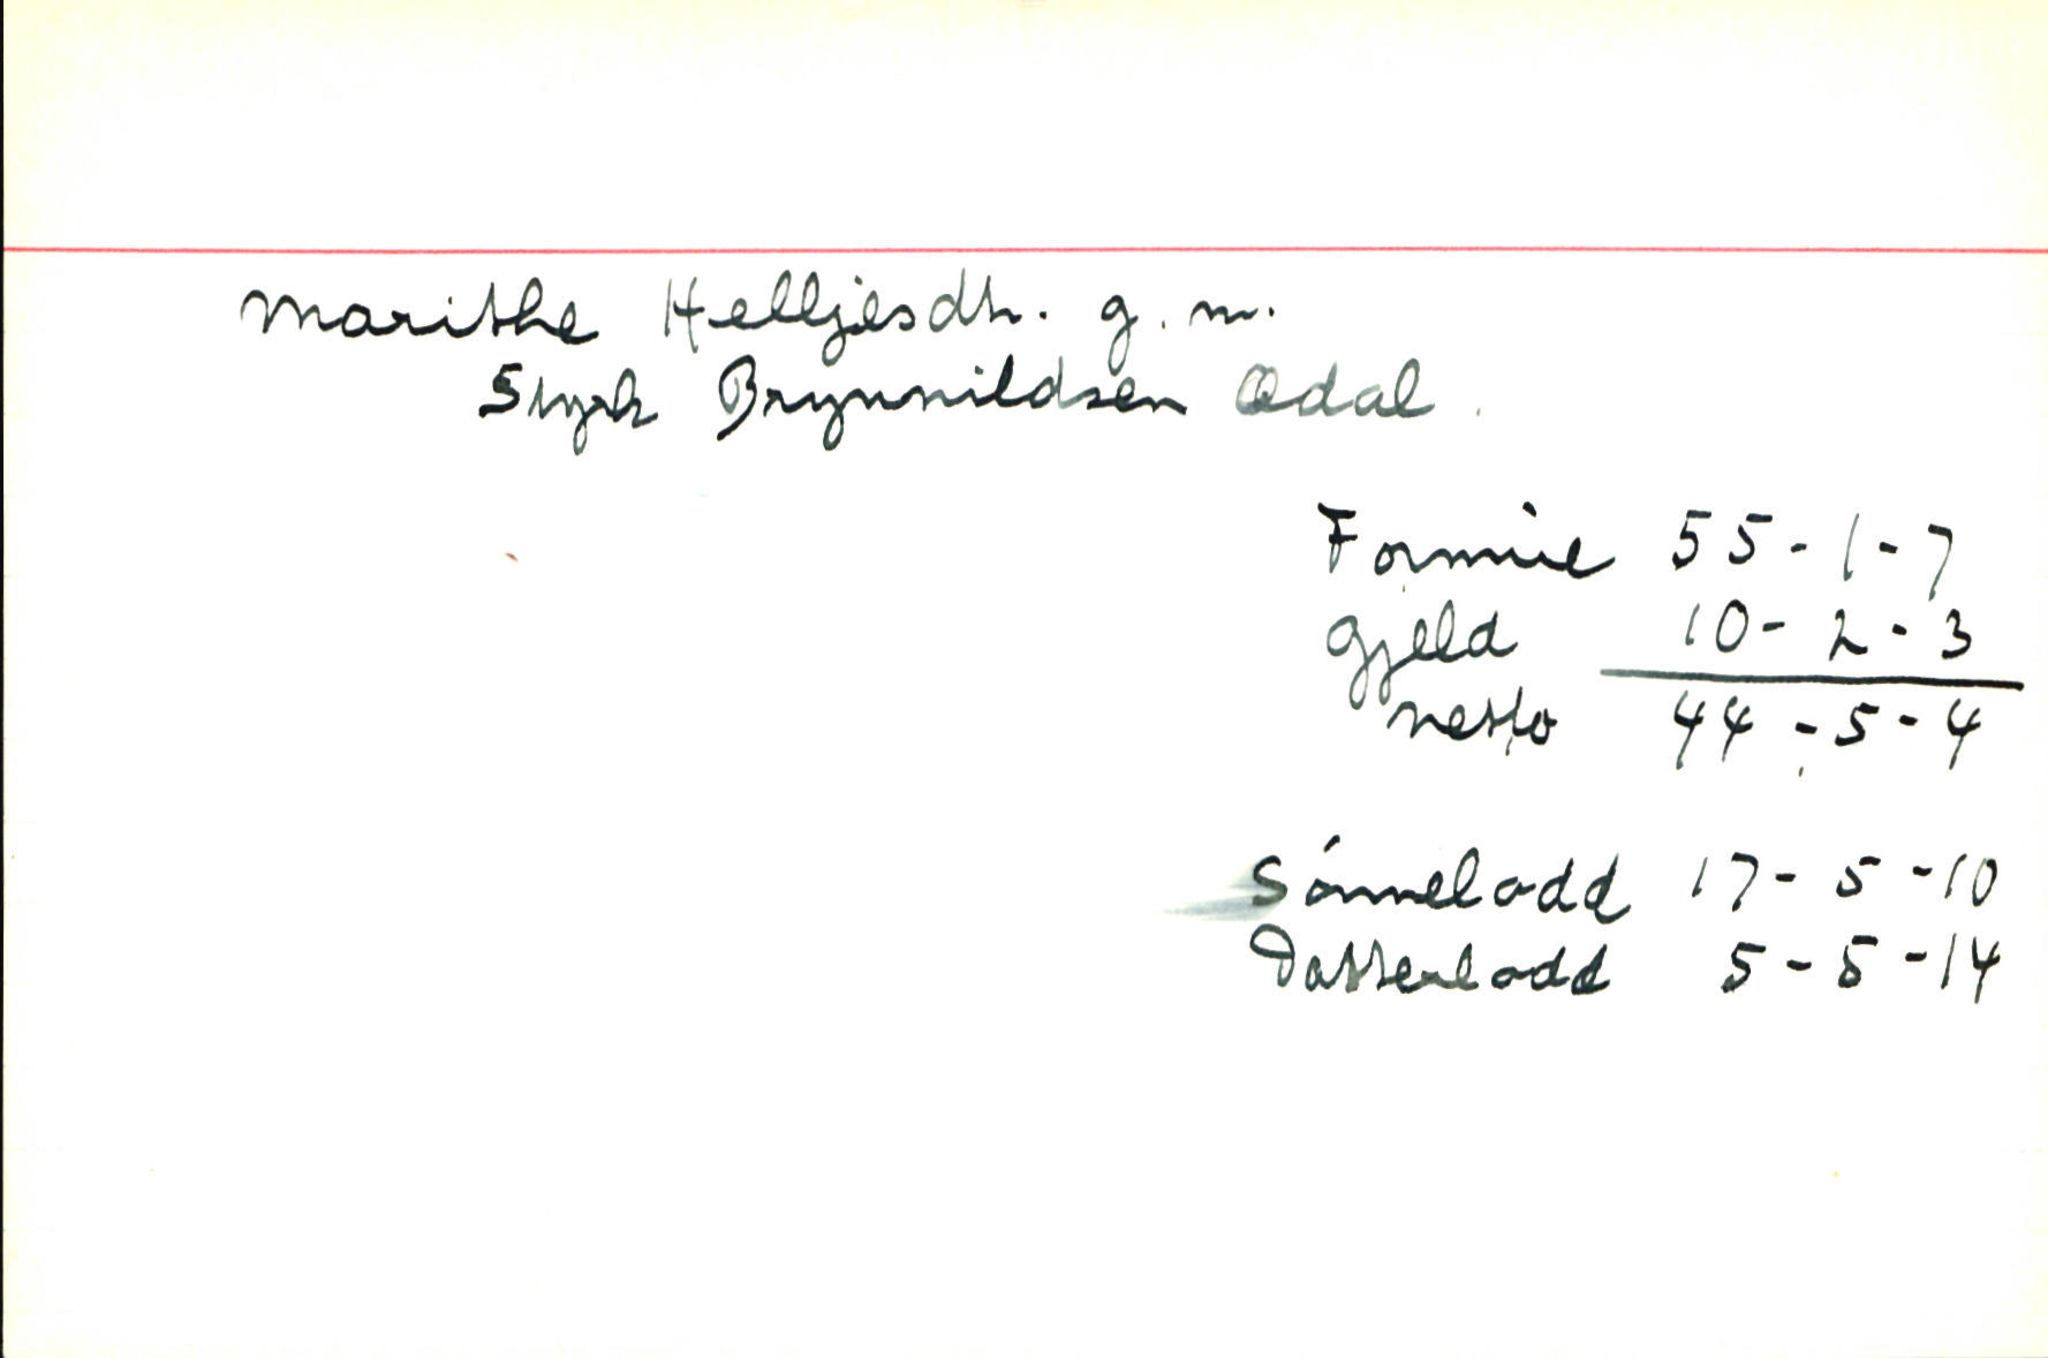 Marithe Helljesdtr. g.m.
Styrk Brynnildsen Ødal.
Formúe 55-1-7
Gjeld 10-2-3
netto 44-5-4
Sónnelodd 17-5-10
Datterlodd 5-5-14